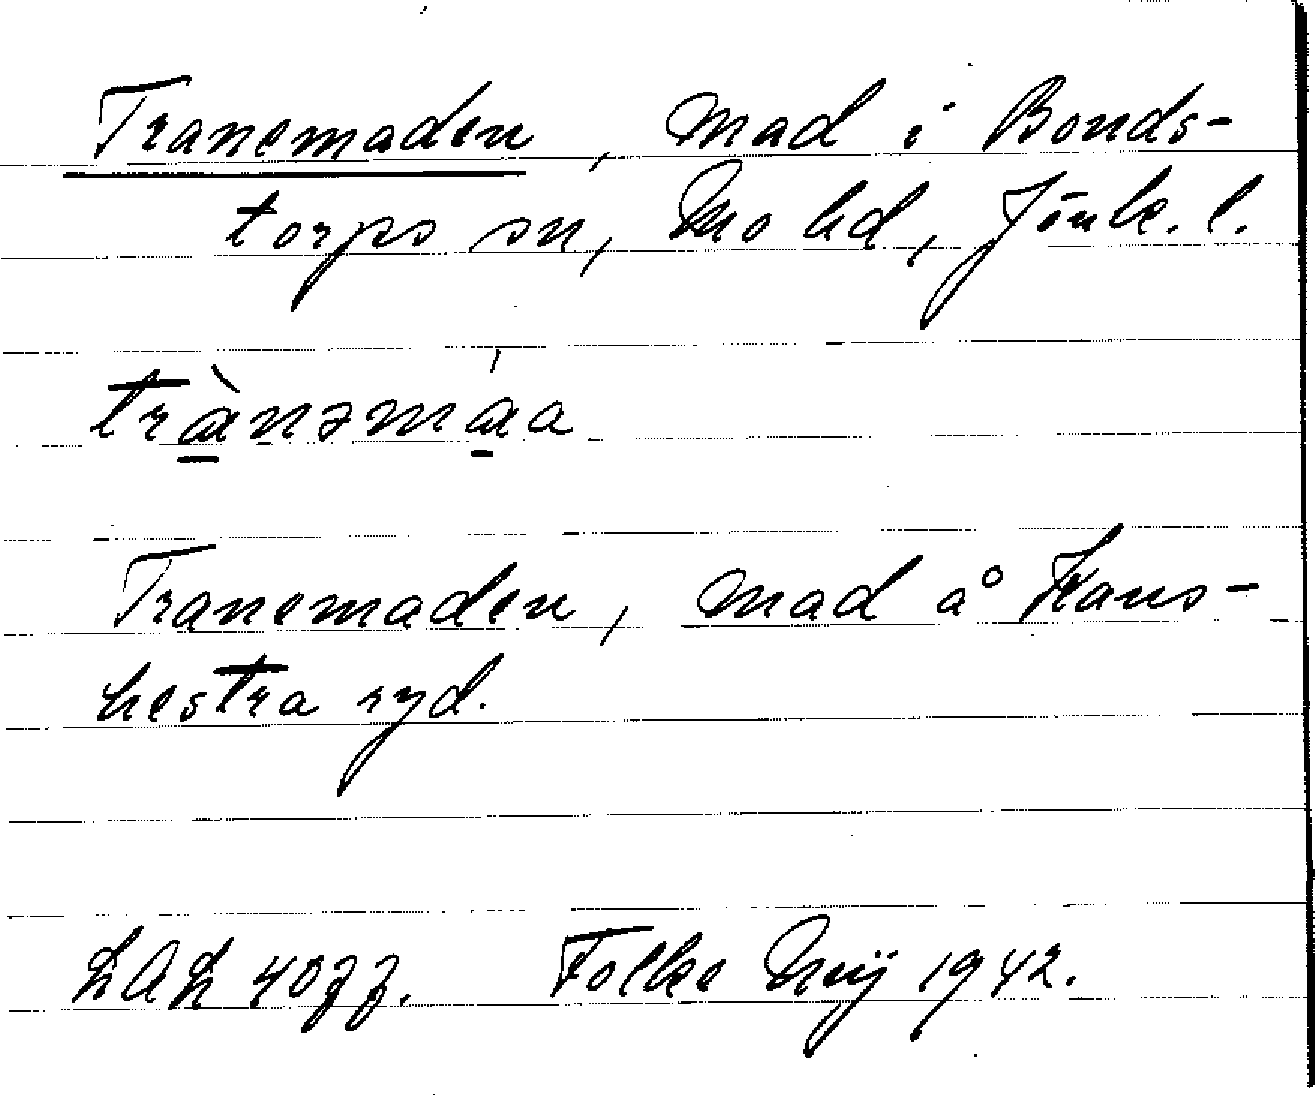 Tranemaden, mad i Bonds-
torps sn, Mo hd, Jönk. l.
trànəmáa
Tranemaden, mad å Kans-
hestra ryd.
LAL 4077. Folke 1942.